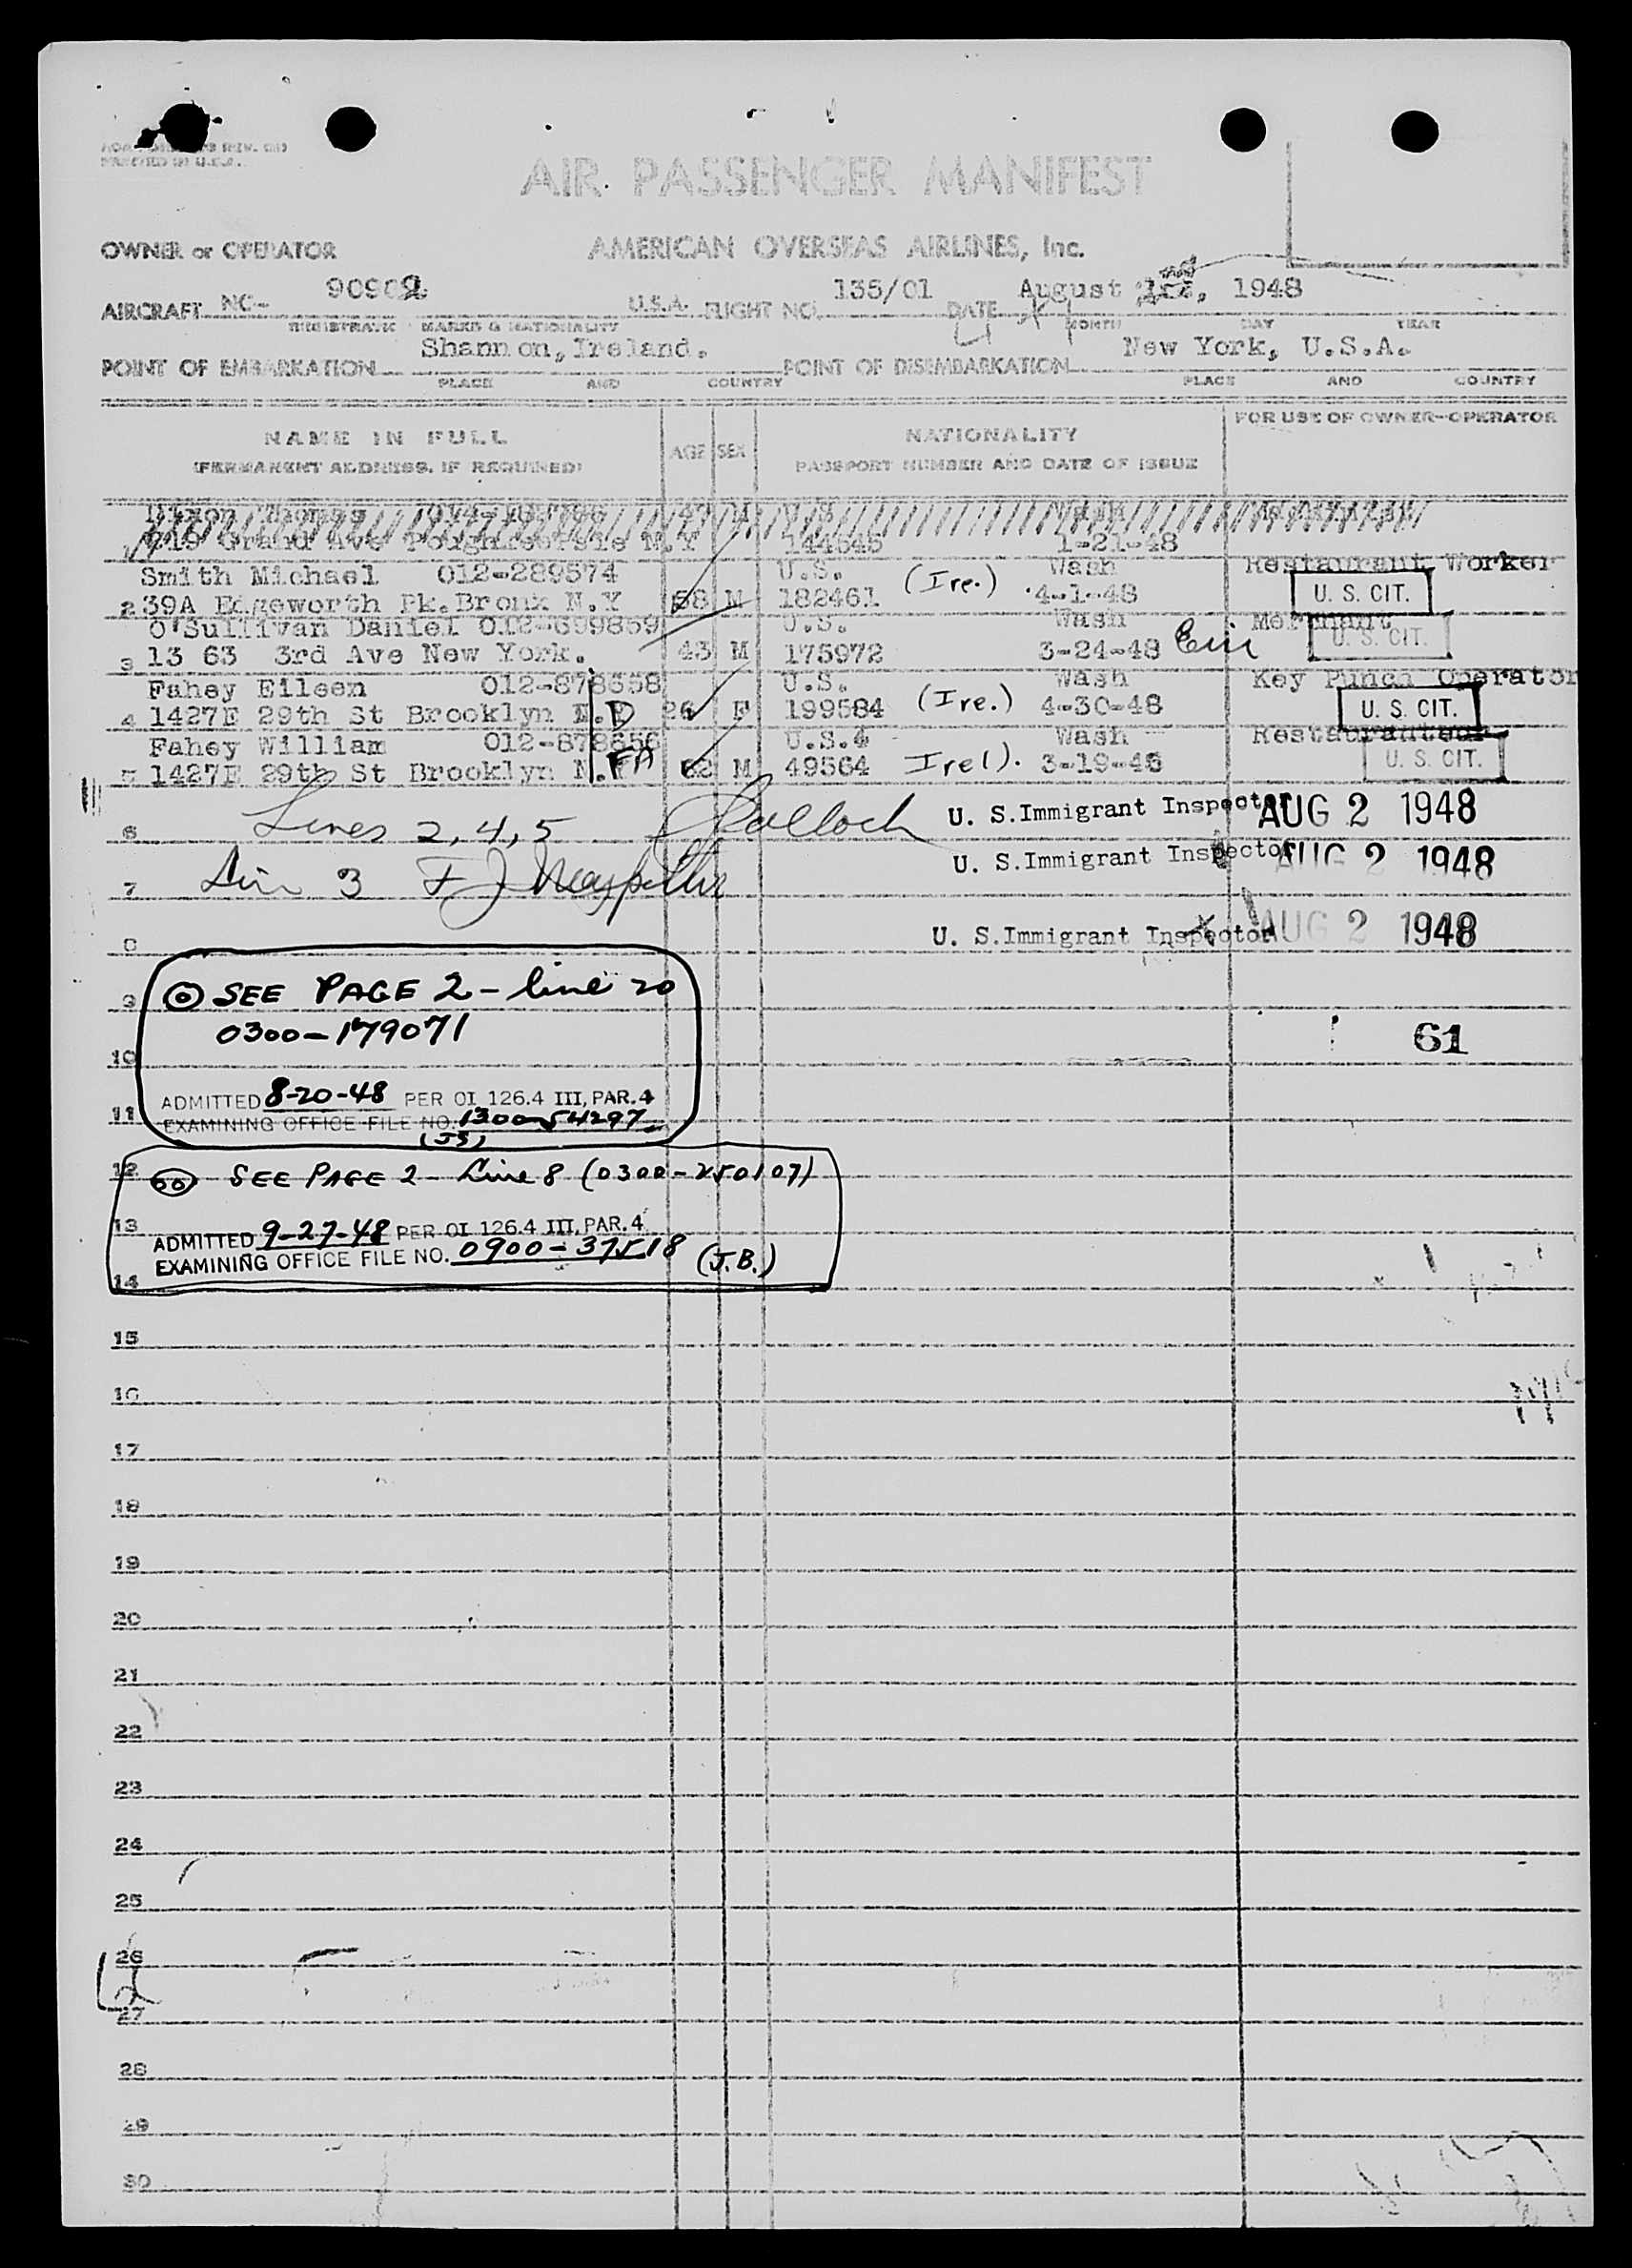 PRINTED IN U.S.A.
AIR PASSENGER MANIFEST
OWNER or OPERATOR AMERICAN OVERSEAS AIRLINES, Inc.
AIRCRAFT NC- 90902 U.S.A. FLIGHT NO. 135/01 DATE August 1948
REGISTRATION MARKS & NATIONALITY MONTH DAY YEAR
POINT OF EMBARKATION Shannon, Ireland. POINT OF DISEMBARKATION New York, U.S.A.
PLACE AND COUNTRY PLACE AND COUNTRY
NAME IN FULL AGE SEX NATIONALITY FOR USE OF OWNER-OPERATOR
(PERMANENT ADDRESS, IF REQUIRED) PASSPORT NUMBER AND DATE OF ISSUE
Thomas U.S. Wash
1 Grand Ave Poughkeepsie N.Y 144545 1-21-48
Smith Michael 012-289574 U.S. (Ire.) Wash Restaurant Worker
2 39A Edgeworth Pk. Bronx N.Y 58 M 182461 4-1-48 U. S. CIT.
O'Sullivan Daniel 012-699859 U.S. Wash Merchant
3 13 63 3rd Ave New York. 43 M 175972 3-24-48 U. S. CIT.
Fahey Eileen 012-878658 U.S. Wash Key Punch Operator
4 1427E 29th St Brooklyn N.Y 26 F 199584 (Ire.) 4-30-48 U. S. CIT.
Fahey William 012-878656 U.S. Wash
5 1427E 29th St Brooklyn N.Y FA 62 M 49564 Irel). 3-19-46 U. S. CIT.
6 Lines 2, 4, 5 U. S. Immigrant Inspector AUG 2 1948
7 Line 3 U. S. Immigrant Inspector AUG 2 1948
8 U. S. Immigrant Inspector AUG 2 1948
9 SEE PAGE 2 - line 20
0300-179071 61
10
ADMITTED 8-20-48 PER OI 126.4 III, PAR. 4
11 EXAMINING OFFICE FILE NO. 1300-54297
(JS)
12 SEE PAGE 2 - Line 8 (0300-250107)
13 ADMITTED 9-27-48 PER OI 126.4 III, PAR. 4
EXAMINING OFFICE FILE NO. 0900-37518 (J.B.)
14
15
16
17
18
19
20
21
22
23
24
25
26
27
28
29
30